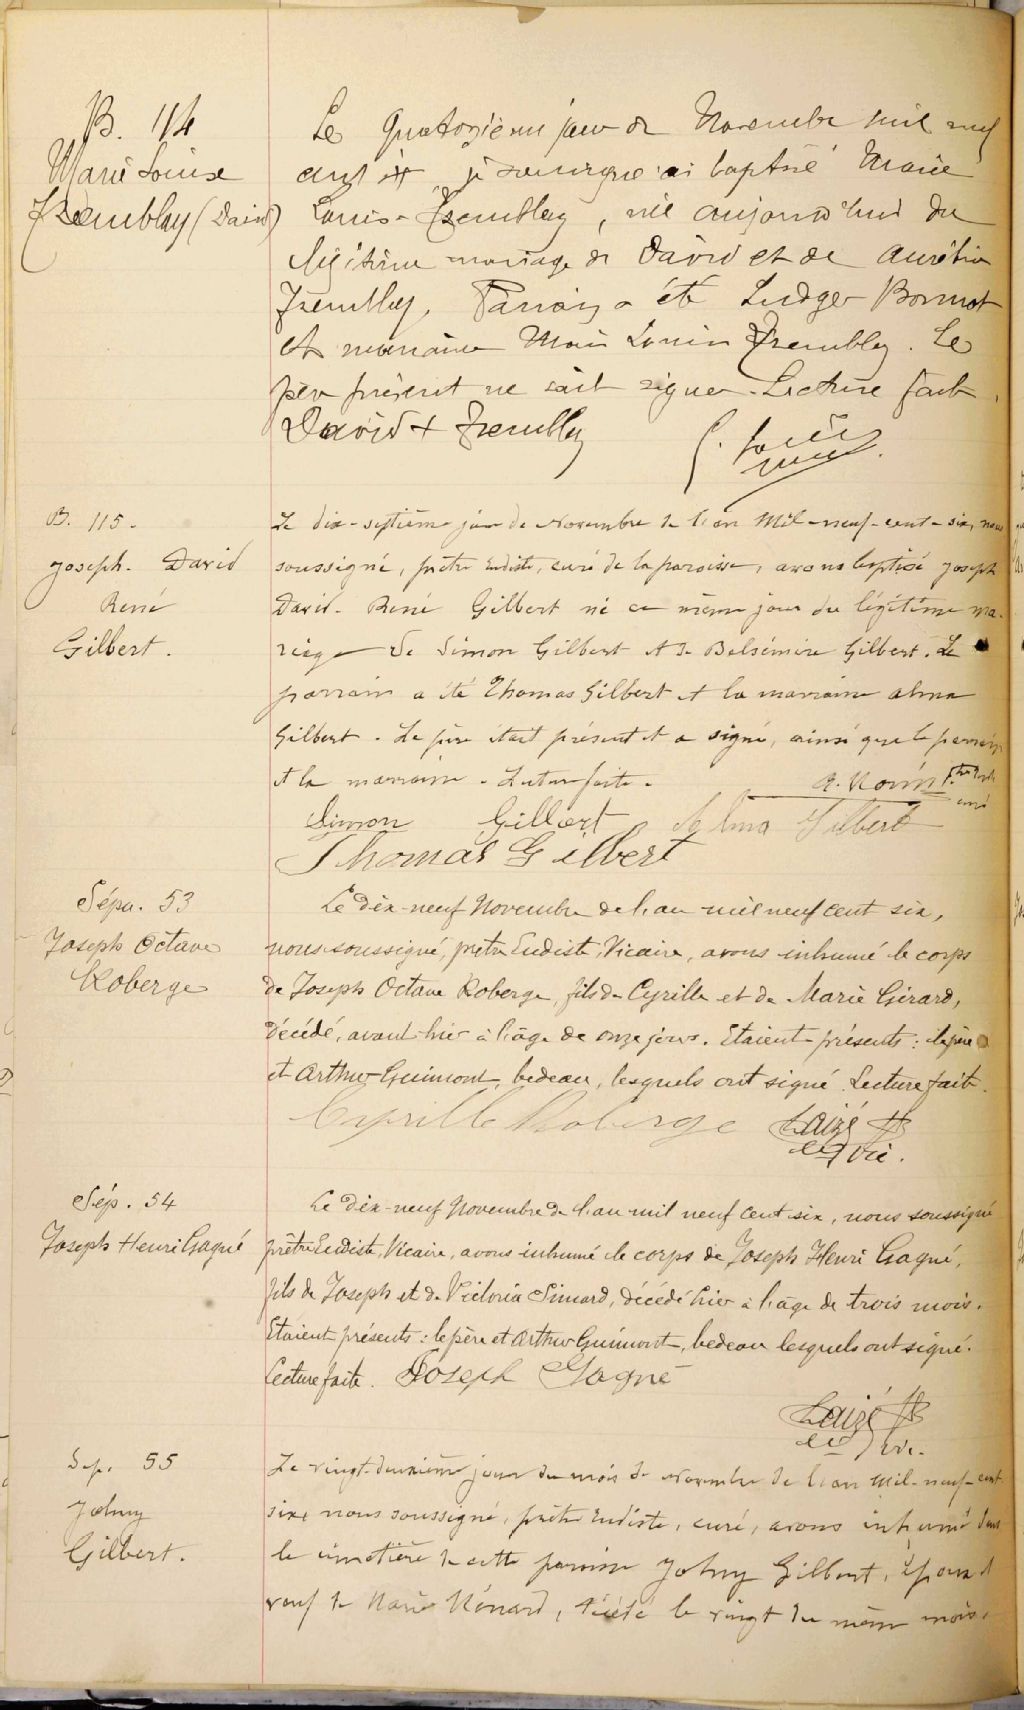 B. 114
Marie Louise
Tremblay (David)
Le Quatorzième jour de Novembre mil neuf
cent six je soussigné ai baptisé Marie
Louise Tremblay, née aujourd'hui du
légitime mariage de David et de Aurélia
Tremblay. Parrain a été Ludger
et marraine Marie Louise Tremblay. Le
père présent ne sait signer. Lecture faite.
David + Tremblay
B. 115.
Joseph. David
René
Gilbert.
Le dix-septième jour de Novembre de l'an Mil-neuf-cent-six, nous
soussigné, prêtre Eudiste, curé de la paroisse, avons baptisé Joseph
David-René Gilbert né ce même jour du légitime ma-
riage de Simon Gilbert et de Belsémire Gilbert. Le
parrain a été Thomas Gilbert et la marraine Alma
Gilbert. Le père était présent et a signé, ainsi que le parrain
et la marraine. Lecture faite.
Simon Gilbert Alma Gilbert
Thomas Gilbert
Sépu. 53
Joseph Octave
Roberge
Le dix-neuf Novembre de l'an mil neuf cent six,
nous soussigné, prêtre Eudiste, Vicaire, avons inhumé le corps
de Joseph Octave Roberge, fils de Cyrille et de Marie Girard,
décédé, avant-hier à l'âge de onze jours. Etaient présents: le père
et Arthur Guimont, bedeau, lesquels ont signé. Lecture faite.
Cyrille Roberge Laizé
vic.
Sép. 54
Joseph Henri Gagné
Le dix-neuf Novembre de l'an mil neuf cent six, nous soussigné
prêtre Eudiste, Vicaire, avons inhumé le corps de Joseph Henri Gagné,
fils de Joseph et de Victoria Simard, décédé hier à l'âge de trois mois.
Etaient présents: le père et Arthur Guimont, bedeau lesquels ont signé.
Lecture faite. Joseph Gagné
Laizé
vic.
Sep. 55
Johny
Gilbert.
Le vingt-deuxième jour du mois de Novembre de l'an Mil-neuf-cent
six, nous soussigné, prêtre Eudiste, curé, avons inhumé dans
le cimetière de cette paroisse Johny Gilbert, Époux et
veuf de Marie Ménard, décédé le vingt du même mois,